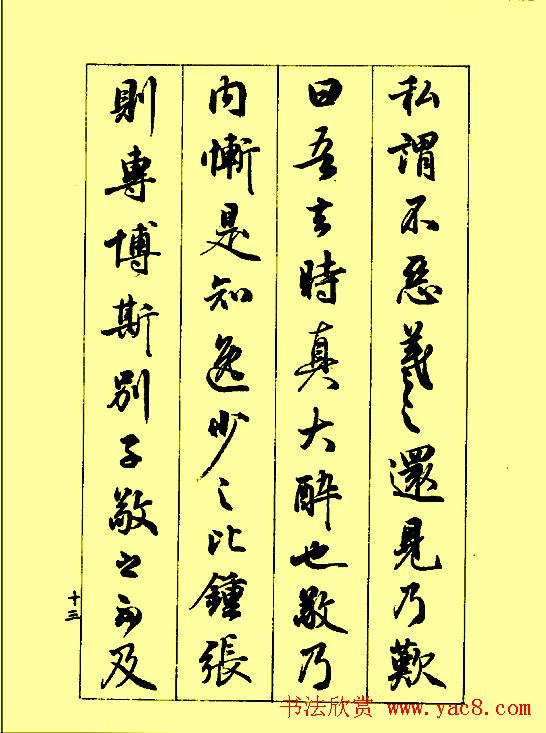 私謂不惡羲之還見乃歎
曰吾去時真大醉也敬乃
內慚是知逸少之比鍾張
則專博斯別子敬之不及
十三
书法欣赏 www.yac8.com